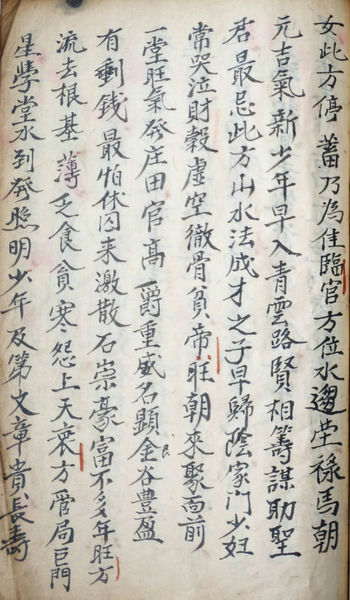 女此方停蓄乃為佳臨官方位水邊茔祿馬朝
元吉氣新少年早入青雲路賢相籌謀助聖
君最忌此方山水法成才之子早歸陰家門少妇
常哭泣財穀虛空徹骨貧帝旺朝來聚面前
一堂旺氣發庄田官高爵重威名顯金谷豊盈
有剩錢最怕休囚来激散石崇豪富不多年旺方
流去根基薄乏食貧寒怨上天衰方管局巨門
星學堂水到發照明少年及第文章貴長壽